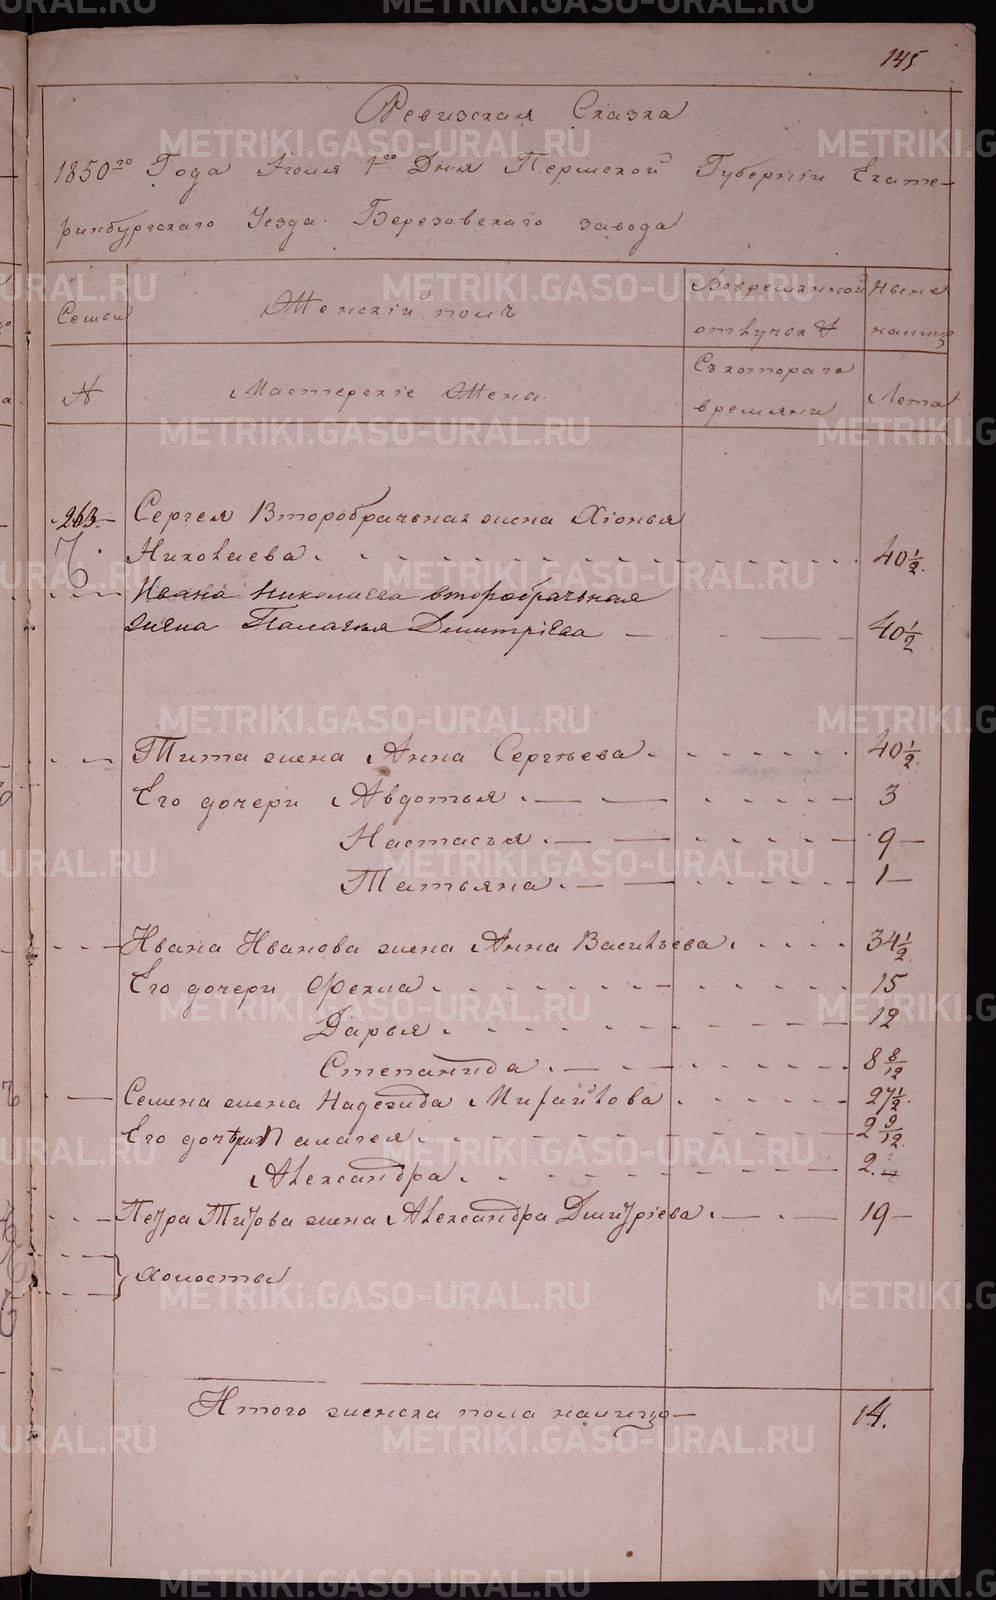 145
Ревизская Сказка
1850го Года Июля 1го Дня Пермской Губернiи Екате-
ринбургскаго Уезда. Березовскаго завода
Семьи
Женскiй полъ
Во временной отлучке
Ныне налицо
№
Мастерскiе Жена
Съ котораго времяни
Лета
263. Сергея Второбрачная жена Хiонья
Николаева 40 1/2
Ивана Николаева второбрачная
жена Палагья Дмитрiева 40 1/2
Тита жена Анна Сергѣева 40 1/2
Его дочери Авдотья 3
Настасья 9
Татьяна 1
Ивана Иванова жена Анна Васильева 34 1/2
Его дочери Фекла 15
Дарья 12
Степанида 8 8/12
Семена жена Надежида Михайлова 27 1/2
Его дочѣри Палагея 2 9/12
Александра 2
Петра Титова жена Александра Дмитрiева 19
Холосты
Итого женска пола налицо 14.
METRIKI.GASO-URAL.RU